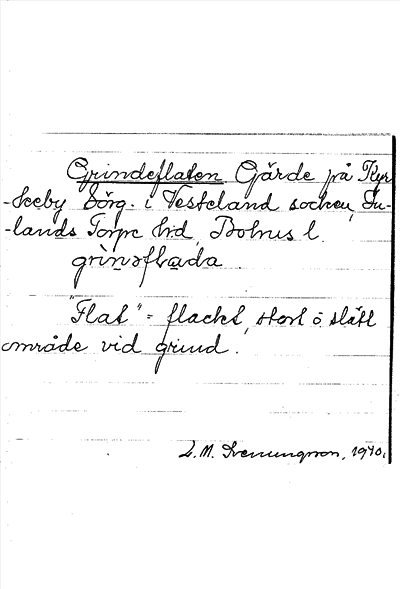 Grindeflaten Gärde på Kyr-
-keby Sörg. i Vesterland socken, In-
-lands Torpe hrd, Bohus l.
grìṉəflada
"Flat" = flackt, stort o slätt
område vid grind.
L. M. Svenungsson, 1940.